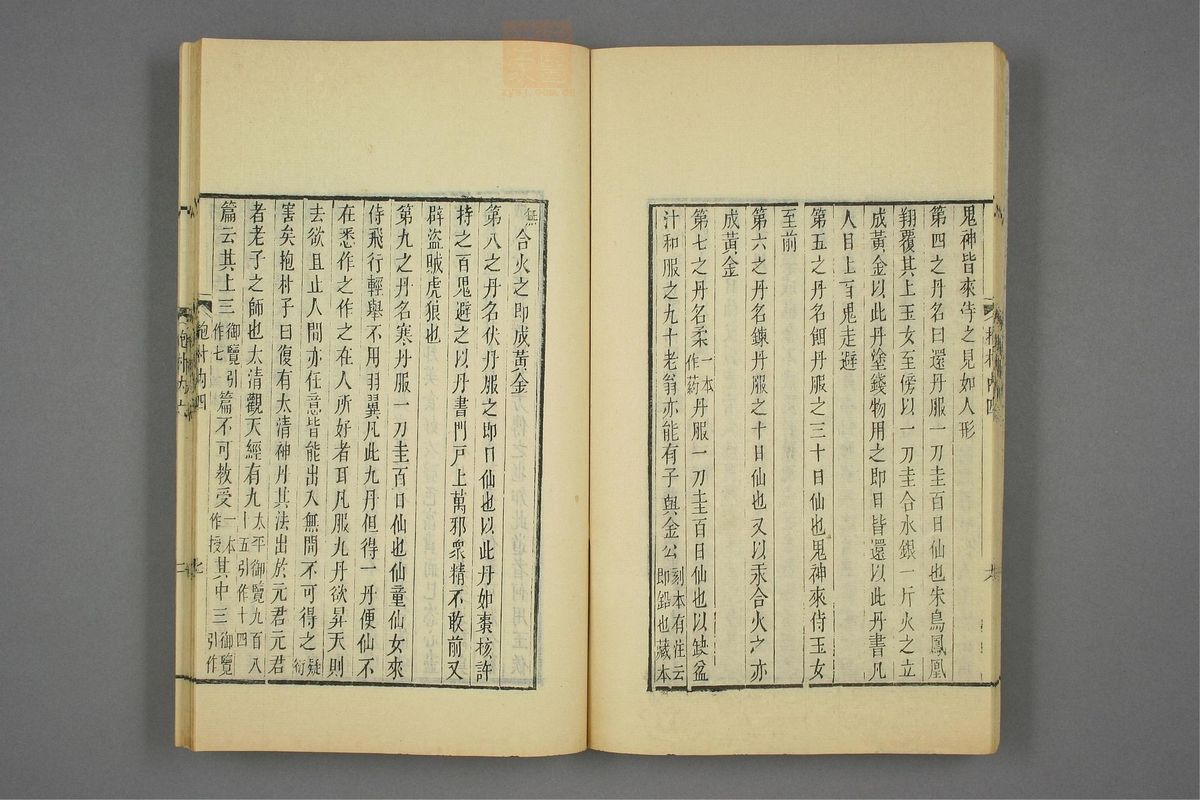 鬼神皆來侍之見如人形
第四之丹名曰還丹服一刀圭百日仙也朱鳥鳳凰
翔覆其上玉女至傍以一刀圭合水銀一斤火之立
成黃金以此丹塗錢物用之即日皆還以此丹書凡
人目上百鬼走避
第五之丹名餌丹服之三十日仙也鬼神來侍玉女
至前
第六之丹名鍊丹服之十日仙也又以汞合火之亦
成黃金
第七之丹名柔一本作药丹服一刀圭百日仙也以缺盆
汁和服之九十老翁亦能有子與金公刻本有注云即鉛也藏本
無合火之即成黃金
第八之丹名伏丹服之即日仙也以此丹如棗核許
持之百鬼避之以丹書門戶上萬邪衆精不敢前又
辟盜賊虎狼也
第九之丹名寒丹服一刀圭百日仙也仙童仙女來
侍飛行輕舉不用羽翼凡此九丹但得一丹便仙不
在悉作之作之在人所好者耳凡服九丹欲昇天則
去欲且止人間亦任意皆能出入無間不可得之疑衍
害矣抱朴子曰復有太清神丹其法出於元君元君
者老子之師也太清觀天經有九太平御覽九百八十五引作十四
篇云其上三御覽引作七篇不可教受一本作授其中三御覽引作
抱朴內四